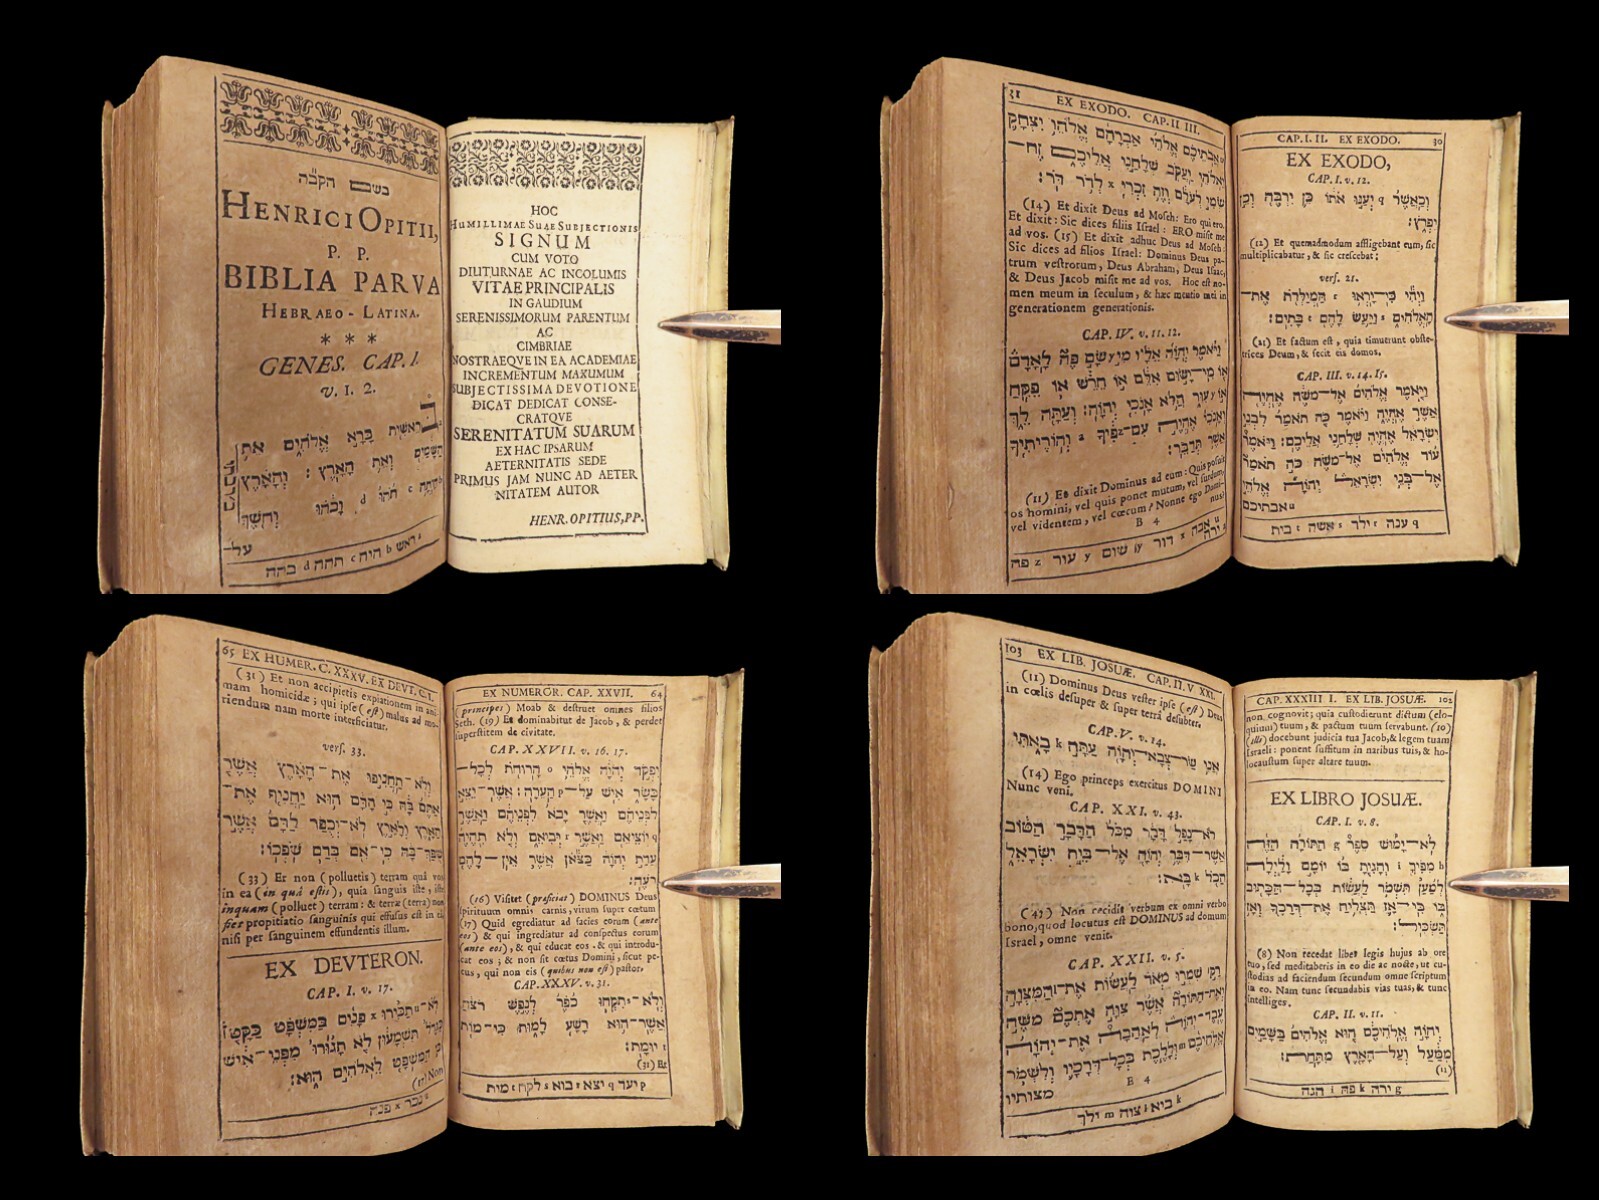 HOC
HUMILLIMAE SUAE SUBJECTIONIS
SIGNUM
CUM VOTO
DIUTURNAE AC INCOLUMIS
VITAE PRINCIPALIS
IN GAUDIUM
SERENISSIMORUM PARENTUM
AC
CIMBRIAE
NOSTRAEQVE IN EA ACADEMIAE
INCREMENTUM MAXUMUM
SUBJECTISSIMA DEVOTIONE
DICAT DEDICAT CONSE-
CRATQVE
SERENITATUM SUARUM
EX HAC IPSARUM
AETERNITATIS SEDE
PRIMUS JAM NUNC AD AETER
NITATEM AUTOR
HENR. OPITIUS, PP.
בשם הקבה
HENRICI OPITII,
P. P.
BIBLIA PARVA
HEBRAEO - LATINA.
* * *
GENES. CAP. I.
v. 1. 2.
בראשית בָּרָא אֱלֹהִים את
השמים וְאֵת הָאָרֶץ: וְהָאָרֶץ
היתה c תֹהוּ d וָבֹהוּ וְחֹשֶׁךְ
על־
a ראש b היה c תהה d בהה
CAP. I. II. EX EXODO. 30
EX EXODO,
CAP. I. v. 12.
וְכַאֲשֶׁר q יְעַנּוּ אֹתוֹ כֵּן יִרְבֶּה וְכֵן
יִפְרֹץ:
(12) Et quemadmodum affligebant eum, sic
multiplicabatur, & sic crescebat;
vers. 21.
וַיְהִי כִּי־יָרְאוּ r הַמְיַלְּדֹת אֶת־
הָאֱלֹהִים s וַיַּעַשׂ לָהֶם t בָּתִּים:
(21) Et factum est, quia timuerunt obste-
trices Deum, & fecit eis domos.
CAP. III. v. 14. 15.
וַיֹּאמֶר אֱלֹהִים אֶל־מֹשֶׁה אֶהְיֶה
אֲשֶׁר אֶהְיֶה וַיֹּאמֶר כֹּה תֹאמַר לִבְנֵי
יִשְׂרָאֵל אֶהְיֶה שְׁלָחַנִי אֲלֵיכֶם: וַיֹּאמֶר
עוֹד אֱלֹהִים אֶל־מֹשֶׁה כֹּה תֹאמַר
אֶל־בְּנֵי יִשְׂרָאֵל יְהוָֹה אֱלֹהֵי
אבתיכם
q ענה r ילד s עשה t בית
31 EX EXODO. CAP. II III.
אֲבֹתֵיכֶם אֱלֹהֵי אַבְרָהָם אֱלֹהֵי יִצְחָק
וֵאלֹהֵי יַעֲקֹב שְׁלָחַנִי אֲלֵיכֶם זֶה־
שְׁמִי לְעֹלָם וְזֶה זִכְרִי x לְדֹר דֹּר:
(14) Et dixit Deus ad Mosch: Ero qui ero.
Et dixit: Sic dices filiis Israel: ERO misit me
ad vos. (15) Et dixit adhuc Deus ad Mosch:
Sic dices ad filios Israel: Dominus Deus pa-
trum vestrorum, Deus Abraham, Deus Isaac,
& Deus Jacob misit me ad vos. Hoc est no-
men meum in seculum, & hæc mentio mei in
generationem generationis.
CAP. IV. v. 11. 12.
וַיֹּאמֶר יְהוָֹה אֵלָיו מִי y שָׂם פֶּה לָאָדָם
אוֹ מִי־יָשׂוּם אִלֵּם אוֹ חֵרֵשׁ אוֹ פִקֵּחַ
אוֹ עִוֵּר הֲלֹא אָנֹכִי יְהוָֹה: וְעַתָּה לֵךְ
וְאָנֹכִי אֶהְיֶה עִם־פִּיךָ וְהוֹרֵיתִיךָ
אשר תְּדַבֵּר:
(11) Et dixit Dominus ad eum: Quis posuit
os homini, vel quis ponet mutum, vel surdum,
vel videntem, vel cœcum? Nonne ego Domi-
nus?
B 4
u אבה x דור y שום y עור z פה
EX NUMEROR. CAP. XXVII. 64
(principes) Moab & destruet omnes filios
Seth. (19) Et dominabitur de Jacob, & perdet
superstitem de civitate.
CAP. XXVII. v. 16. 17.
יִפְקֹד יְהוָֹה אֱלֹהֵי o הָרוּחֹת לְכָל־
בָּשָׂר אִישׁ עַל־ p הָעֵדָה: אֲשֶׁר־יֵצֵא
לִפְנֵיהֶם וַאֲשֶׁר יָבֹא לִפְנֵיהֶם וַאֲשֶׁר
q יוֹצִיאֵם וַאֲשֶׁר r יְבִיאֵם וְלֹא תִהְיֶה
עֲדַת יְהוָֹה כַּצֹּאן אֲשֶׁר אֵין־לָהֶם
רֹעֶה:
(16) Visitet (præficiat) DOMINUS Deus
spirituum omnis carnis, virum super cœtum
(17) Quid egrediatur ad facies eorum (ante
eos) & qui ingrediatur ad conspectus eorum
(ante eos), & qui educat eos . & qui introdu-
cat eos ; & non sit cœtus Domini, sicut pe-
cus, qui non eis (quibus non est) pastor.
CAP. XXXV. v. 31.
וְלֹא־תִקְחוּ כֹפֶר לְנֶפֶשׁ רֹצֵחַ
אֲשֶׁר־הוּא רָשָׁע לָמוּת כִּי־מוֹת
t יוּמָת:
(31) Et
p יעד q יצא r בוא s לקח t מות
65 EX HUMER. C. XXXV. EX DEVT. C. I.
(31) Et non accipietis expiationem in ani-
mam homicidæ ; qui ipse (est) malus ad mo-
riendum nam morte interficiatur.
vers. 33.
וְלֹא־תַחֲנִיפוּ אֶת־הָאָרֶץ אֲשֶׁר
אַתֶּם בָּהּ כִּי הַדָּם הוּא יַחֲנִיף אֶת־
הָאָרֶץ וְלָאָרֶץ לֹא־יְכֻפַּר לַדָּם אֲשֶׁר
שֻׁפַּךְ־בָּהּ כִּי־אִם בְּדַם שֹׁפְכוֹ:
(33) Et non (polluetis) terram quâ vos
in ea (in quâ estis), quia sanguis iste, iste
inquam (polluet) terram : & terræ (terra) non
fiet propitiatio sanguinis qui effusus est in eâ
nisi per sanguinem effundentis illum.
EX DEVTERON.
CAP. I. v. 17.
לֹא־תַכִּירוּ x פָנִים בַּמִּשְׁפָּט כַּקָּטֹן
כַּגָּדֹל תִּשְׁמָעוּן לֹא תָגוּרוּ מִפְּנֵי־אִישׁ
כִּי הַמִּשְׁפָּט לֵאלֹהִים הוּא:
(17) Non
u נכר x פנה
CAP. XXXIII I. EX LIB. JOSUÆ. 102
non cognovit; quia custodierunt dictum (elo-
quium) tuum, & pactum tuum servabunt. (10)
(illi) docebunt judicia tua Jacob, & legem tuam
Israeli: ponent suffitum in naribus tuis, & ho-
locaustum super altare tuum.
EX LIBRO JOSUÆ.
CAP. I. v. 8.
לֹא־יָמוּשׁ סֵפֶר g הַתּוֹרָה הַזֶּה
h מִפִּיךָ i וְהָגִיתָ בּוֹ יוֹמָם וָלַיְלָה
לְמַעַן תִּשְׁמֹר לַעֲשׂוֹת כְּכָל־הַכָּתוּב
בּוֹ כִּי־אָז תַּצְלִיחַ אֶת־דְּרָכֶךָ וְאָז
תַּשְׂכִּיל:
(8) Non recedat liber legis hujus ab ore
tuo, sed meditaberis in eo die ac nocte, ut cu-
stodias ad faciendum secundum omne scriptum
in eo. Nam tunc secundabis vias tuas, & tunc
intelliges.
CAP. II. v. 11.
יְהוָֹה אֱלֹהֵיכֶם הוּא אֱלֹהִים בַּשָּׁמַיִם
מִמַּעַל וְעַל־הָאָרֶץ מִתָּחַת:
(11)
g ירה h פה i הגה
103 EX LIB. JOSUÆ. CAP. II. V XXI.
(11) Dominus Deus vester ipse (est) Deus
in cœlis desuper & super terrâ desubter.
CAP. V. v. 14.
אֲנִי שַׂר־צְבָא־יְהוָֹה עַתָּה k בָאתִי
(14) Ego princeps exercitus DOMINI
Nunc veni.
CAP. XXI. v. 43.
לֹא־נָפַל דָּבָר מִכֹּל הַדָּבָר הַטּוֹב
אֲשֶׁר־דִּבֶּר יְהוָֹה אֶל־בֵּית יִשְׂרָאֵל
הַכֹּל k בָּא:
(43) Non recidit verbum ex omni verbo
bono, quod locutus est DOMINUS ad domum
Israel, omne venit.
CAP. XXII. v. 5.
רַק שִׁמְרוּ מְאֹד לַעֲשׂוֹת אֶת־הַמִּצְוָה
וְאֶת־הַתּוֹרָה אֲשֶׁר צִוָּה אֶתְכֶם מֹשֶׁה
עֶבֶד־יְהוָֹה לְאַהֲבָה אֶת־יְהוָֹה
אֱלֹהֵיכֶם m וְלָלֶכֶת בְּכָל־דְּרָכָיו וְלִשְׁמֹר
מצותיו
E 4
k בוא l צוה m ילך